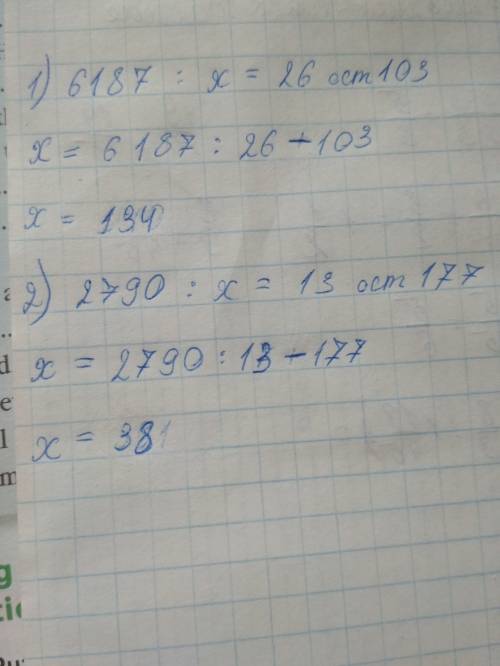 1) 6187 : x = 26 ост 103
x = 6187 : 26 - 103
x = 134
2) 2790 : x = 13 ост 177
x = 2790 : 13 - 177
x = 381